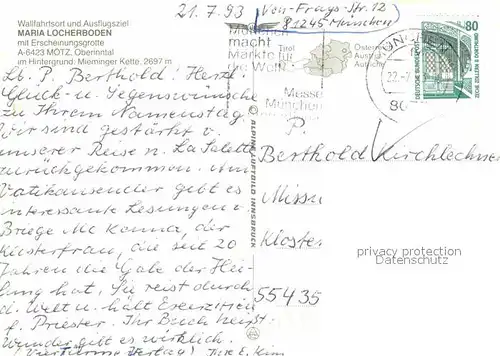 Wallfahrtsort und Ausflugsziel
MARIA LOCHERBODEN
mit Erscheinungsgrotte
A-6423 MÖTZ, Oberinntal
im Hintergrund: Mieminger Kette, 2697 m
21.7.93
Von-Frays-Str. 12
81245 München
Lb. P. Berthold! Herzl.
Glück- u. Segenswünsche
zu Ihrem Namenstag.
Wir sind gestärkt v.
unserer Reise n. La Salette
zurückgekommen. Am
Vatikansender gibt es
interessante Lesungen v.
Briege Mc Kenna, der
Klosterfrau, die seit 20
Jahren die Gabe der Hei-
lung hat. Sie reist durch
d. Welt u. hält Exerzitien
f. Priester. Ihr Buch heißt:
Wunder gibt es wirklich.
Verlag)
© ALPINE LUFTBILD INNSBRUCK
München
macht
Märkte für
die Welt
Tirol
Österreich
Austria
Autriche
Messe
München
22.-7
80
DEUTSCHE BUNDESPOST
80
P.
Berthold Kirchlechner
Missi
Kloster
55435
privacy protection
Datenschutz